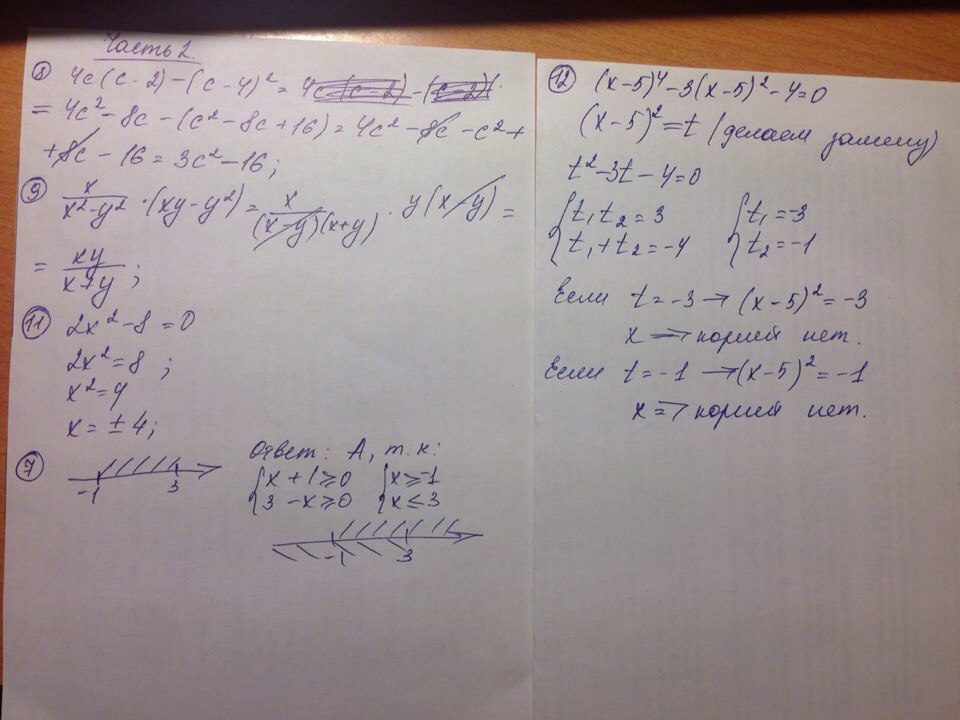 Часть 2.
⑧ 4c(c-2)-(c-4)²=4c
= 4c²-8c-(c²-8c+16)=4c²-8c-c²+
+8c-16=3c²-16;
⑨ x/(x²-y²) · (xy-y²)= x/((x-y)(x+y)) · y(x-y) =
= xy/(x+y) ;
⑪ 2x²-8=0
2x²=8 ;
x²=4
x=±4;
⑦ -1 3
Ответ: А, т.к:
{x+1≥0 {x≥-1
{3-x≥0 {x≤3
-1 3
⑫ (x-5)⁴-3(x-5)²-4=0
(x-5)²=t (делаем замену)
t²-3t-4=0
{t₁t₂=3 {t₁=-3
{t₁+t₂=-4 {t₂=-1
Если t=-3→(x-5)²=-3
x ⇒ корней нет.
Если t=-1→(x-5)²=-1
x ⇒ корней нет.